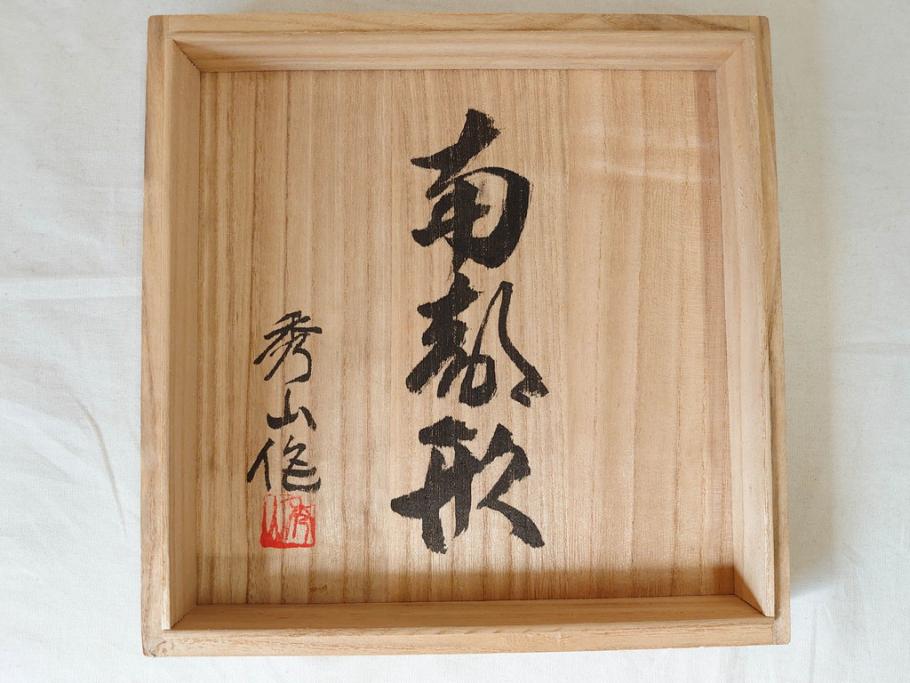 南部形
秀山作
秀山